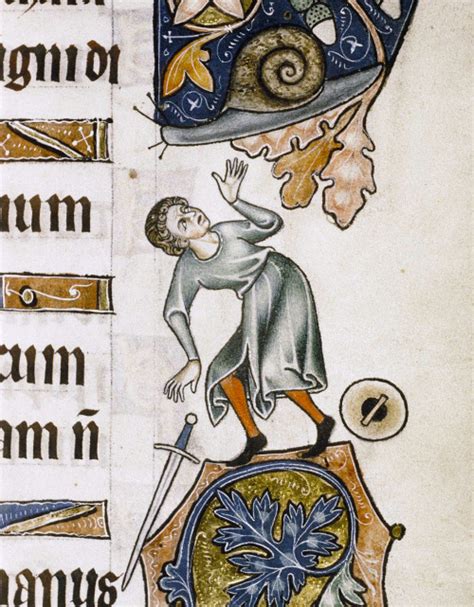 igni di
uum
rum
am n̄
manus